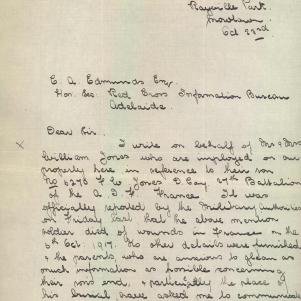 Park.
Oct 23rd
C. A. Edmunds Esq.
Hon. Sec. Red Cross Information Bureau
Adelaide.
Dear Sir.
I write on behalf of Mr & Mrs
William Jones who are employed on our
property here in reference to their son
No 6270 F. W. Jones D. Coy 27th Battalion
of the A. I. F. France. It was
officially reported by the Military Authorities
on Friday last that the above mention
soldier died of wounds in France on the
6th Oct. 1917. No other details were furnished
& the parents, who are anxious to glean as
much information as possible concerning
their sons end, & particularly the place of
his burial have asked me to communicate